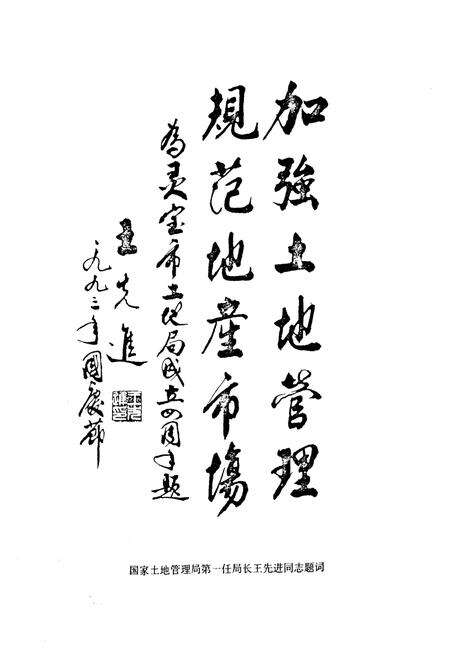 加強土地管理
規范地產市場
為灵宝市土地局成立四周年题
王先進
一九九二年國慶節
国家土地管理局第一任局长王先进同志题词